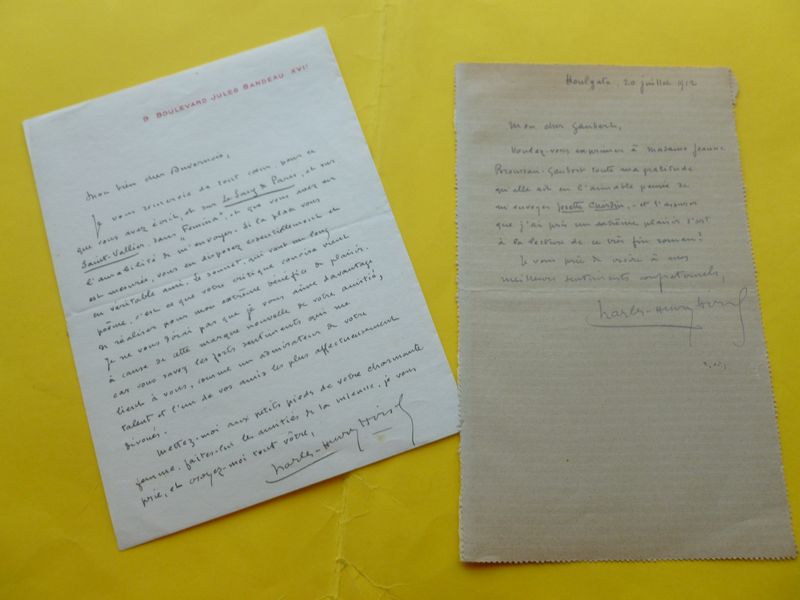 9 BOULEVARD JULES SANDEAU XVIᵉ
Mon bien cher Duvernois,
Je vous remercie de tout cœur, pour ce
que vous avez écrit, et sur Le Sang de Paris, et sur
Saint-Vallier, dans "Femina", et que vous avez eu
l'amabilité de m'envoyer. Si la place vous
est mesurée, vous en disposez essentiellement en
en véritable ami. Le sonnet, qui vaut un long
poème, c'est ce que votre critique concise vient
de réaliser pour mon extrême bénéfice de plaisir.
Je ne vous dirai pas que je vous aime davantage
à cause de cette marque nouvelle de votre amitié,
car vous savez les forts sentiments, qui me
lient à vous, comme un admirateur de votre
talent et l'un de vos amis les plus affectueusement
dévoués.
Mettez-moi aux petits pieds de votre charmante
femme, faites-lui les amitiés de la mienne, je vous
prie, et croyez-moi tout vôtre,
Charles-Henry Hirsch
Houlgate, 20 juillet 1912
Mon cher Gaubert,
Voulez-vous exprimer à madame Jeanne
Gaubert toute ma gratitude
qu'elle ait eu l'aimable pensée de
m'envoyer, et l'assurer
que j'ai pris un extrême plaisir
à la lecture de ce très fin roman?
Je vous prie de croire à mes
meilleurs sentiments confraternels,
Charles-Henry Hirsch